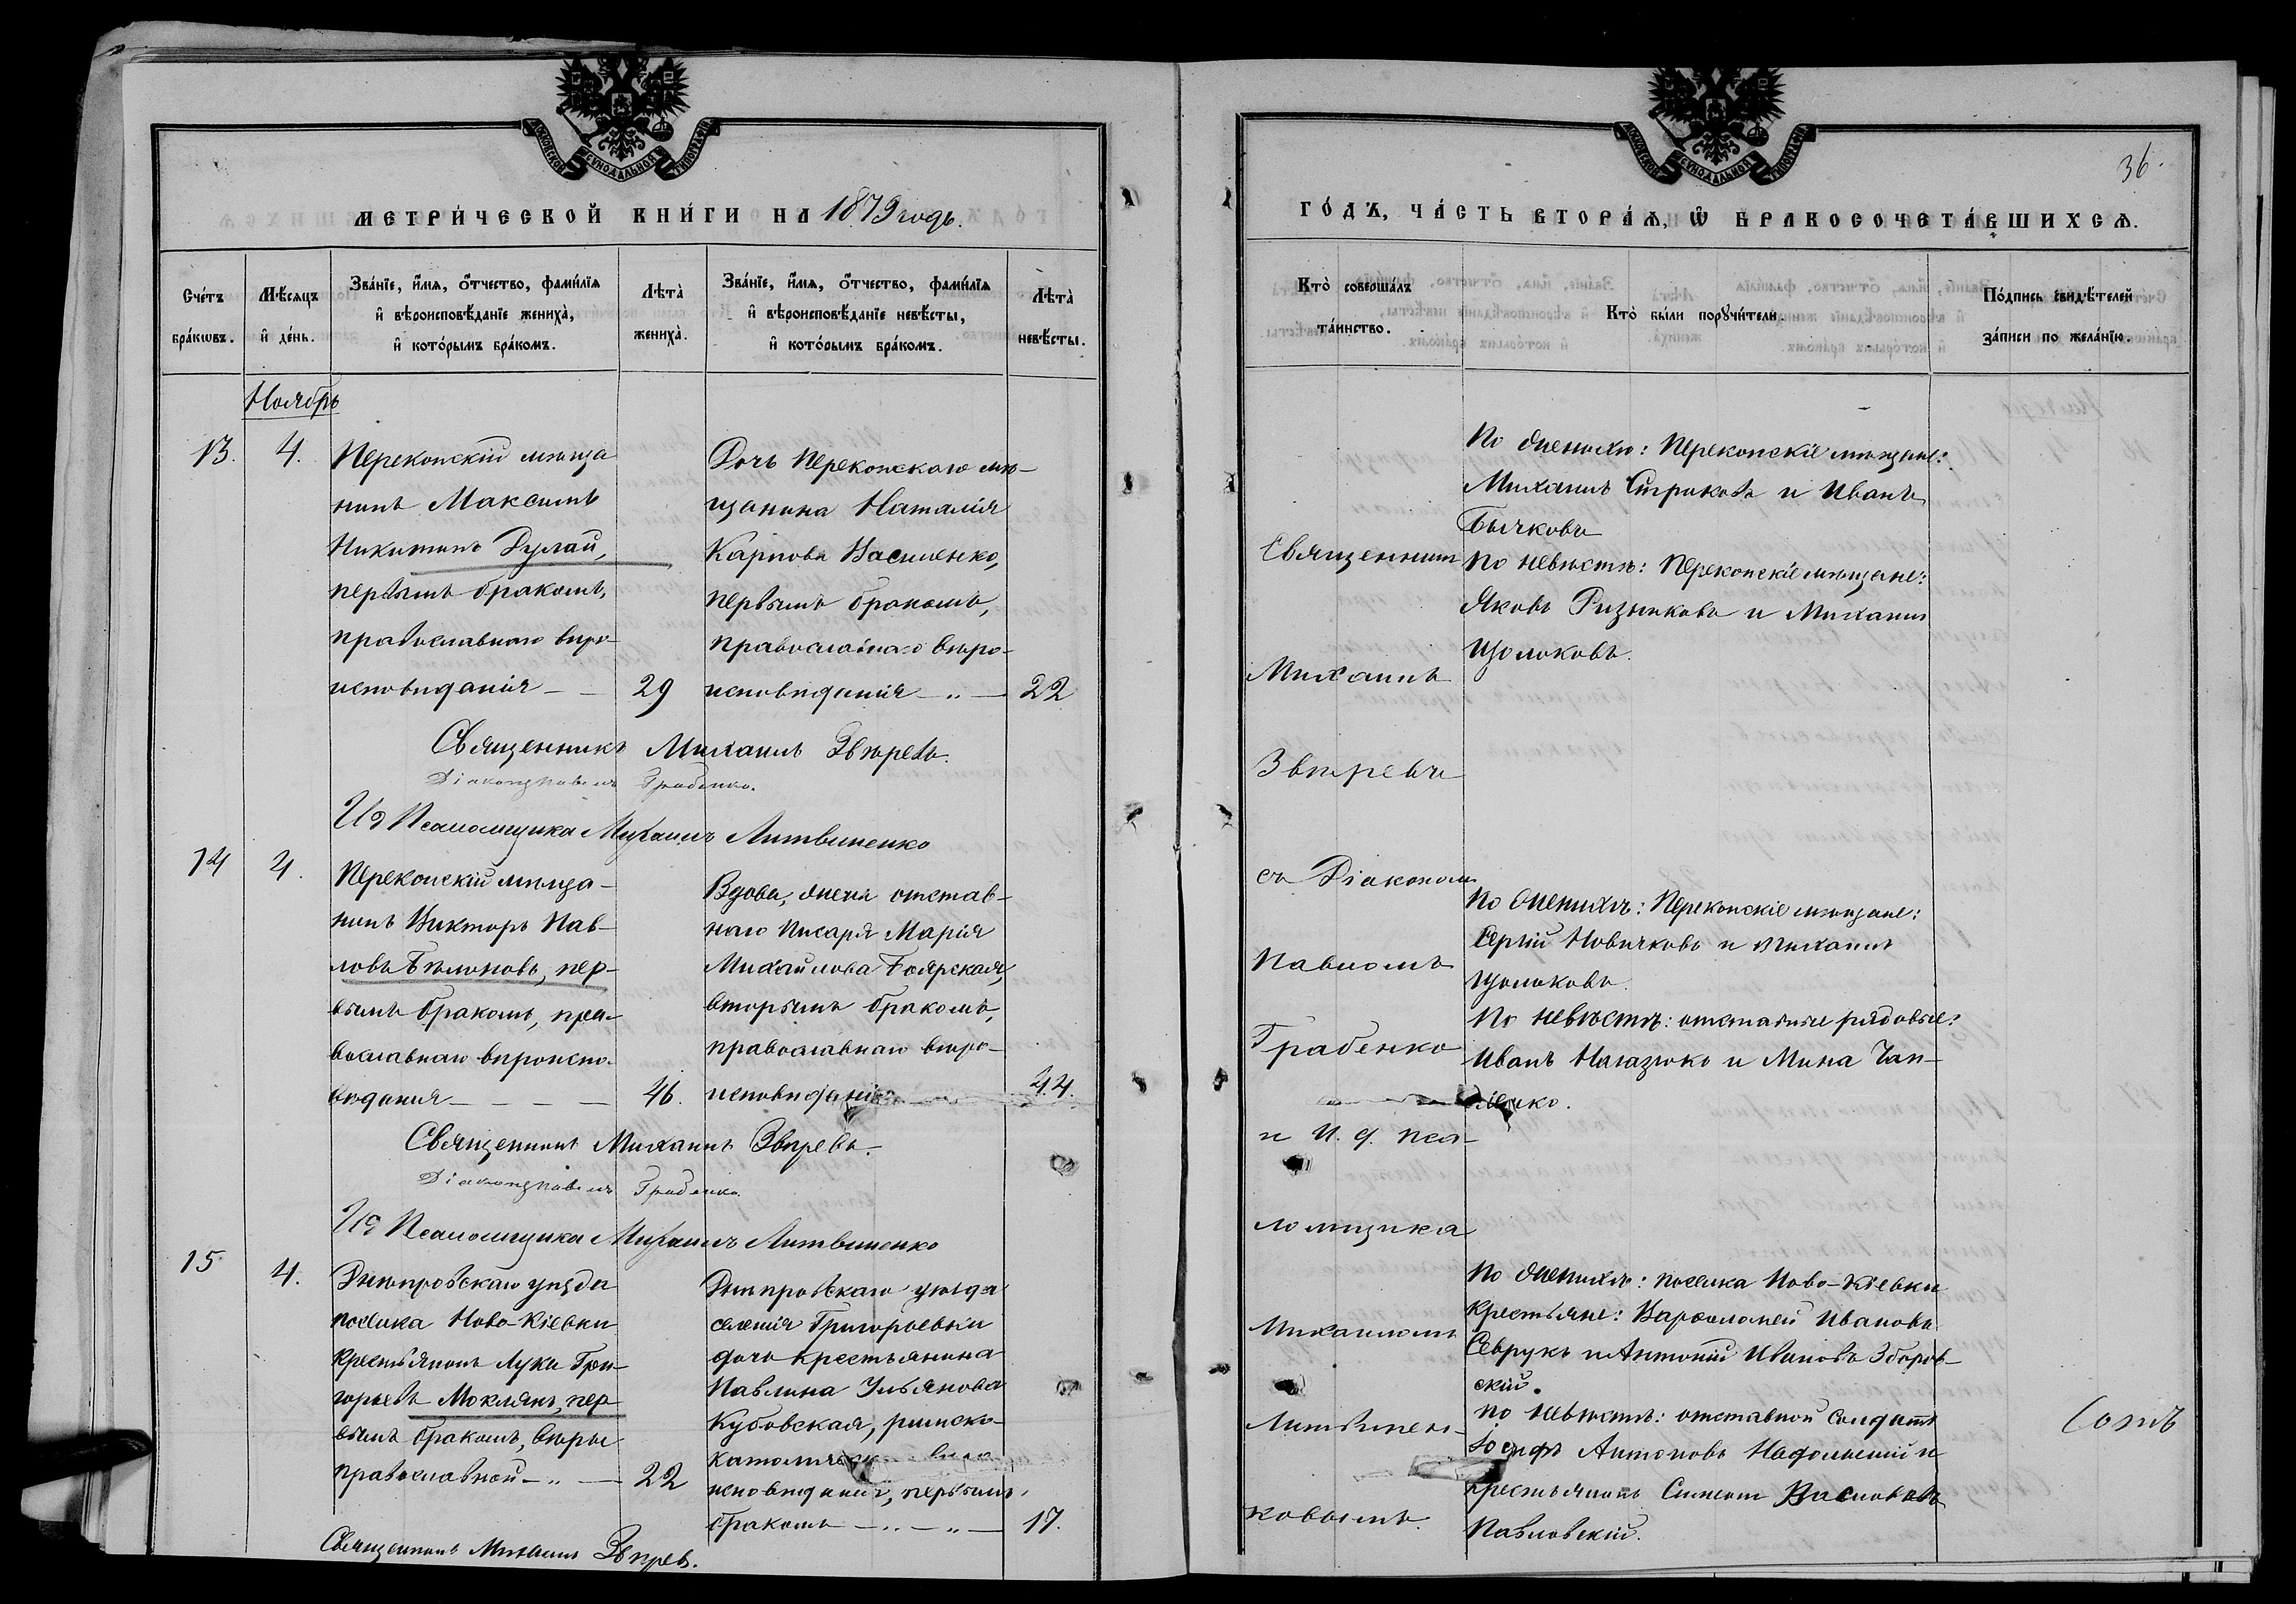 МОСКОВСКОЙ СѴНОДАЛЬНОЙ ТИПОГРАФІИ
МЕТРИЧЕСКОЙ КНИГИ НА 1879 годъ.
Счетъ браковъ.
Мѣсяцъ и день.
Званіе, имя, отчество, фамилія
и вѣроисповѣданіе жениха,
и которымъ бракомъ.
Лѣта жениха.
Званіе, имя, отчество, фамилія
и вѣроисповѣданіе невѣсты,
и которымъ бракомъ.
Лѣта невѣсты.
Ноябрь
13. 4.
Перекопскій мѣща
нинъ Максимъ
Никитинъ Дулай,
первымъ бракомъ,
православнаго вѣро-
исповѣданія — — 29
Дочь Перекопскаго мѣ-
щанина Наталія
Карпова Василенко,
первымъ бракомъ,
православнаго вѣро-
исповѣданія — „ — 22
Священникъ Михаилъ Звѣревъ.
Діаконъ Павелъ Грабенко.
Ид Псаломщика Михаилъ Литвиненко
14 4.
Перекопскій мѣща-
нинъ Викторъ Пав-
ловъ Бѣлоновъ, пер-
вымъ бракомъ, пра-
вославнаго вѣроиспо-
вѣданія — — — — 46.
Вдова, жена отстав-
наго писаря Марія
Михайлова Боярская,
вторымъ бракомъ,
православнаго вѣро-
исповѣданія 44.
Священникъ Михаилъ Звѣревъ.
Діаконъ Павелъ Грабенко.
Ид Псаломщика Михаилъ Литвиненко
15. 4.
Днѣпровскаго уѣзда
поселка Ново-Кіевки
крестьянинъ Лука Гри-
горьевъ Моклякъ, пер-
вымъ бракомъ, вѣры
православной — „ — 22
Днѣпровскаго уѣзда
селенія Григорьевки
дочь крестьянина
Павлина Ульянова
Кубовская, римско-
исповѣданія, первымъ
бракомъ — „ — „ — 17.
Священникъ Михаилъ Звѣрев.
МОСКОВСКОЙ СѴНОДАЛЬНОЙ ТИПОГРАФІИ
36.
ГОДЪ, ЧАСТЬ ВТОРАЯ, Ѡ БРАКОСОЧЕТАВШИХСЯ.
Кто совершалъ таинство.
Кто были поручители.
Подпись свидѣтелей
записи по желанію.
Священникъ
Михаилъ
Звѣревъ
съ Діакономъ
Павломъ
Грабенко
и И. д. пса-
ломщика
Михаиломъ
Литвинен-
ковымъ.
По женихѣ: Перекопскіе мѣщане:
Михаилъ Стрюковъ и Иванъ
Бычковъ
По невѣстѣ: Перекопскіе мѣщане:
Яковъ Ризниковъ и Михаилъ
Щолоковъ.
По женихѣ: Перекопскіе мѣщане:
Сергій Новичковъ и Михаилъ
Щолоковъ.
По невѣстѣ: отставные рядовые:
Иванъ Нагазюкъ и Мина Чап-
ленко.
По женихѣ: поселка Ново-Кіевки
крестьяне: Варѳоломей Ивановъ
Севрукъ и Антоній Ивановъ Зборов-
скій.
По невѣстѣ: отставной солдатъ
Іосифъ Антоновъ Надольскій и
крестьянинъ Симеонъ Васильевъ
Павловскій.